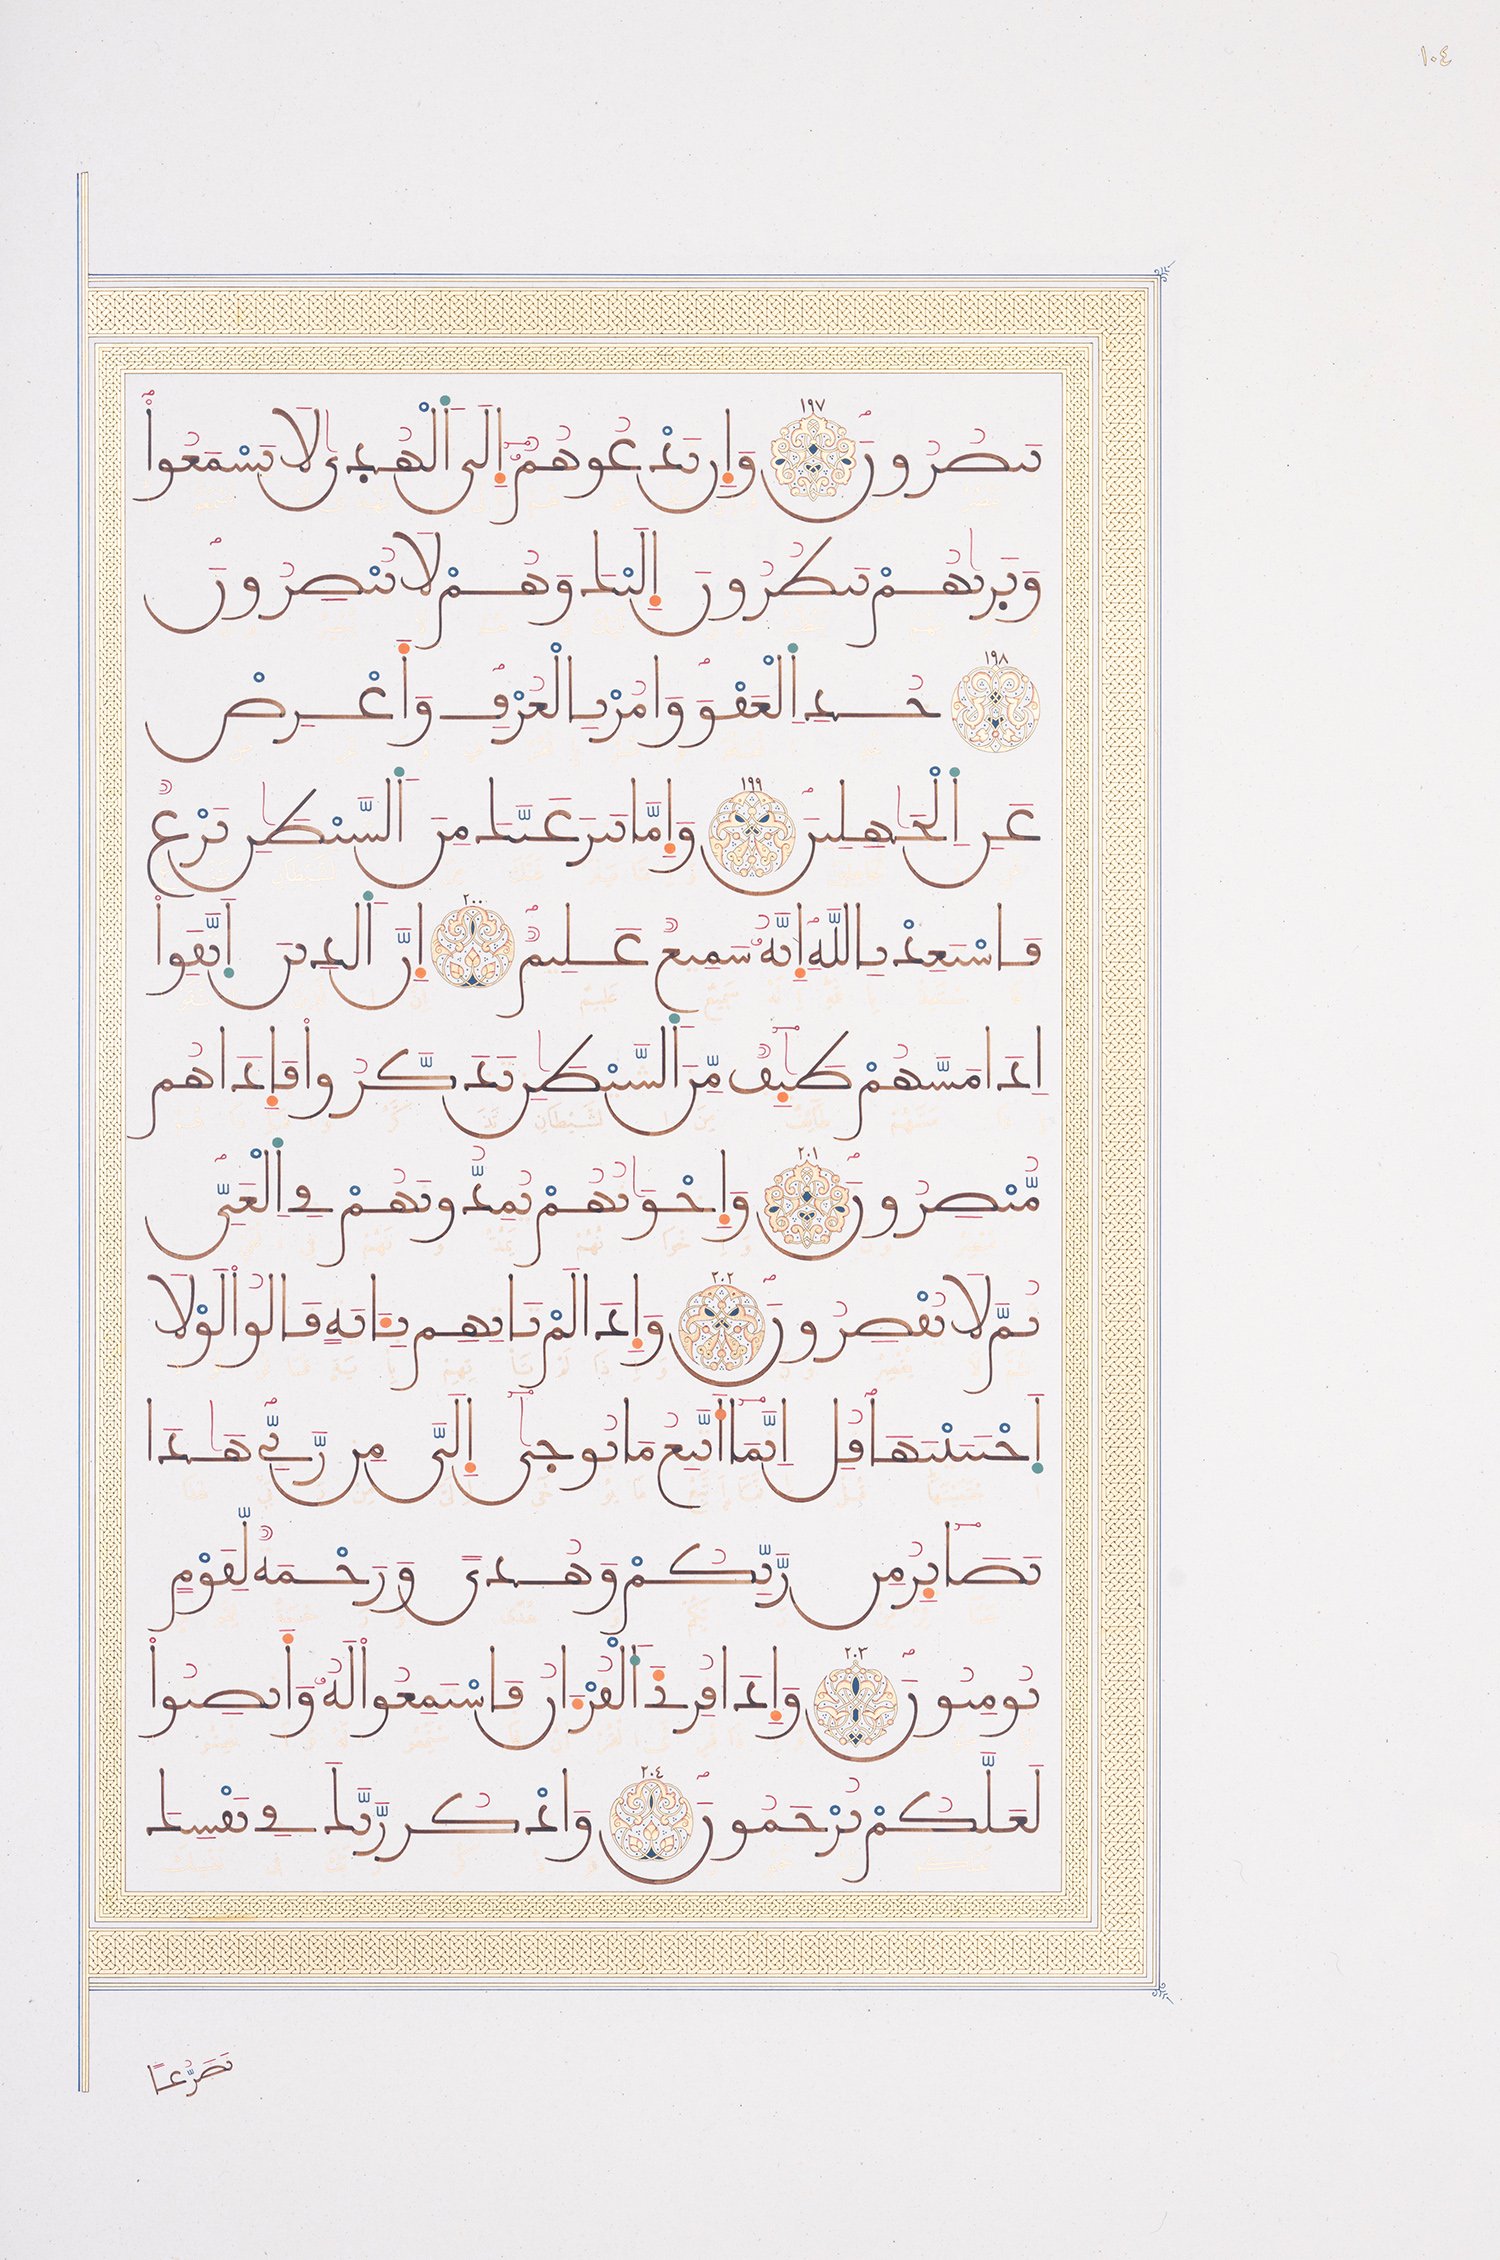 ١٠٤
يَنصُرُونَ ١٩٧ وَإِن تَدْعُوهُمُۥٓ إِلَى ٱلْهُدَىٰ لَا يَسْمَعُوا۟
وَتَرَىٰهُمْ يَنظُرُونَ إِلَيْكَ وَهُمْ لَا يُبْصِرُونَ
١٩٨ خُذِ ٱلْعَفْوَ وَامُرْ بِالْعُرْفِ وَأَعْرِضْ
عَنِ ٱلْجَٰهِلِينَ ١٩٩ وَإِمَّا يَنزَغَنَّكَ مِنَ ٱلشَّيْطَٰنِ نَزْغٌ
فَاسْتَعِذْ بِاللَّهِ إِنَّهُۥ سَمِيعٌ عَلِيمٌ ٢٠٠ إِنَّ ٱلَّذِينَ ٱتَّقَوْا۟
إِذَا مَسَّهُمْ طَٰٓئِفٌ مِّنَ ٱلشَّيْطَٰنِ تَذَكَّرُوا۟ فَإِذَا هُم
مُّبْصِرُونَ ٢٠١ وَإِخْوَٰنُهُمْ يُمِدُّونَهُمْ فِي ٱلْغَيِّ
ثُمَّ لَا يُقْصِرُونَ ٢٠٢ وَإِذَا لَمْ تَاتِهِم بِـَٔايَةٍ قَالُوا۟ لَوْلَا
ٱجْتَبَيْتَهَا قُلِ إِنَّمَآ أَتَّبِعُ مَا يُوحَىٰٓ إِلَيَّ مِن رَّبِّي هَٰذَا
بَصَآئِرُ مِن رَّبِّكُمْ وَهُدًى وَرَحْمَةٌ لِّقَوْمٍ
يُومِنُونَ ٢٠٣ وَإِذَا قُرِئَ ٱلْقُرْءَانُ فَاسْتَمِعُوا۟ لَهُۥ وَأَنصِتُوا۟
لَعَلَّكُمْ تُرْحَمُونَ ٢٠٤ وَاذْكُر رَّبَّكَ فِي نَفْسِكَ
تَضَرُّعًا